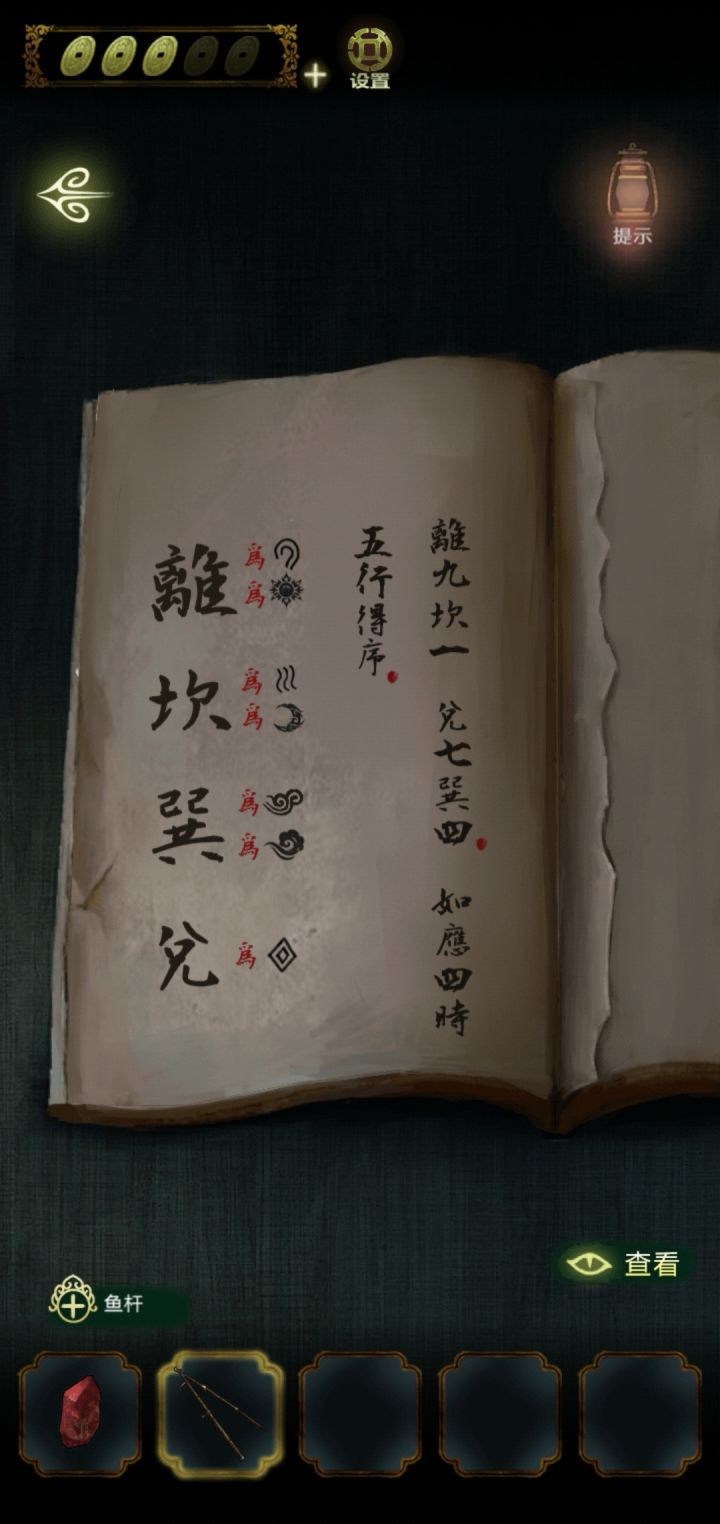 设置
提示
離九坎一 兌七巽四 如應四時
五行得序
離 為 為
坎 為 為
巽 為 為
兌 為
查看
鱼杆